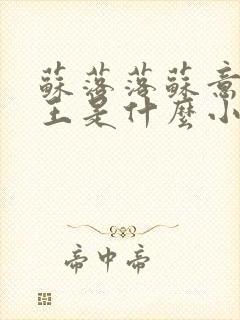 蘇落落蘇意
王是什麼小
帝中帝